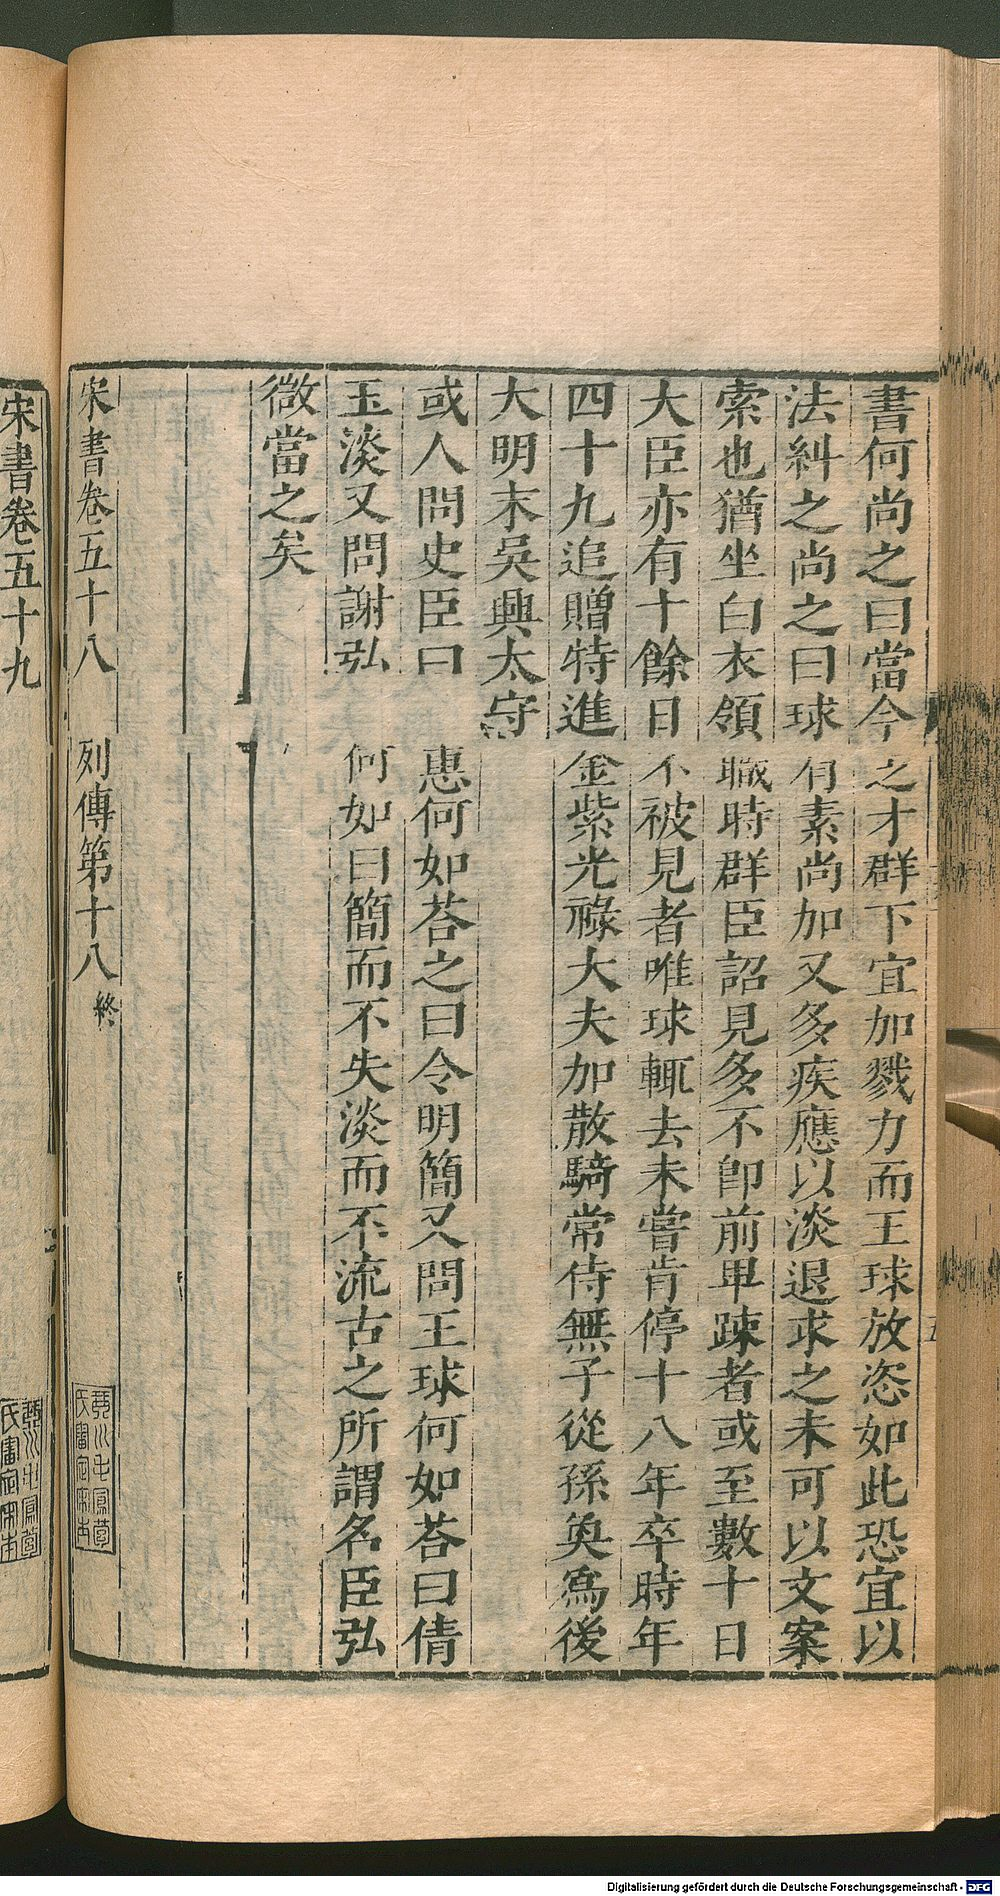 書何尚之曰當今之才群下宜加戮力而王球放恣如此恐宜以
法糾之尚之曰球有素尚加又多疾應以淡退求之未可以文案
索也猶坐白衣領職時群臣詔見多不卽前卑踈者或至數十日
大臣亦有十餘日不被見者唯球輒去未嘗肯停十八年卒時年
四十九追贈特進金紫光祿大夫加散騎常侍無子從孫奐爲後
大明末吳興太守
或人問史臣曰　惠何如荅之曰令明簡又問王球何如荅曰倩
玉淡又問謝弘　何如曰簡而不失淡而不流古之所謂名臣弘
微當之矣
宋書卷五十八　列傳第十八終
宋書卷五十九
Digitalisierung gefördert durch die Deutsche Forschungsgemeinschaft - DFG